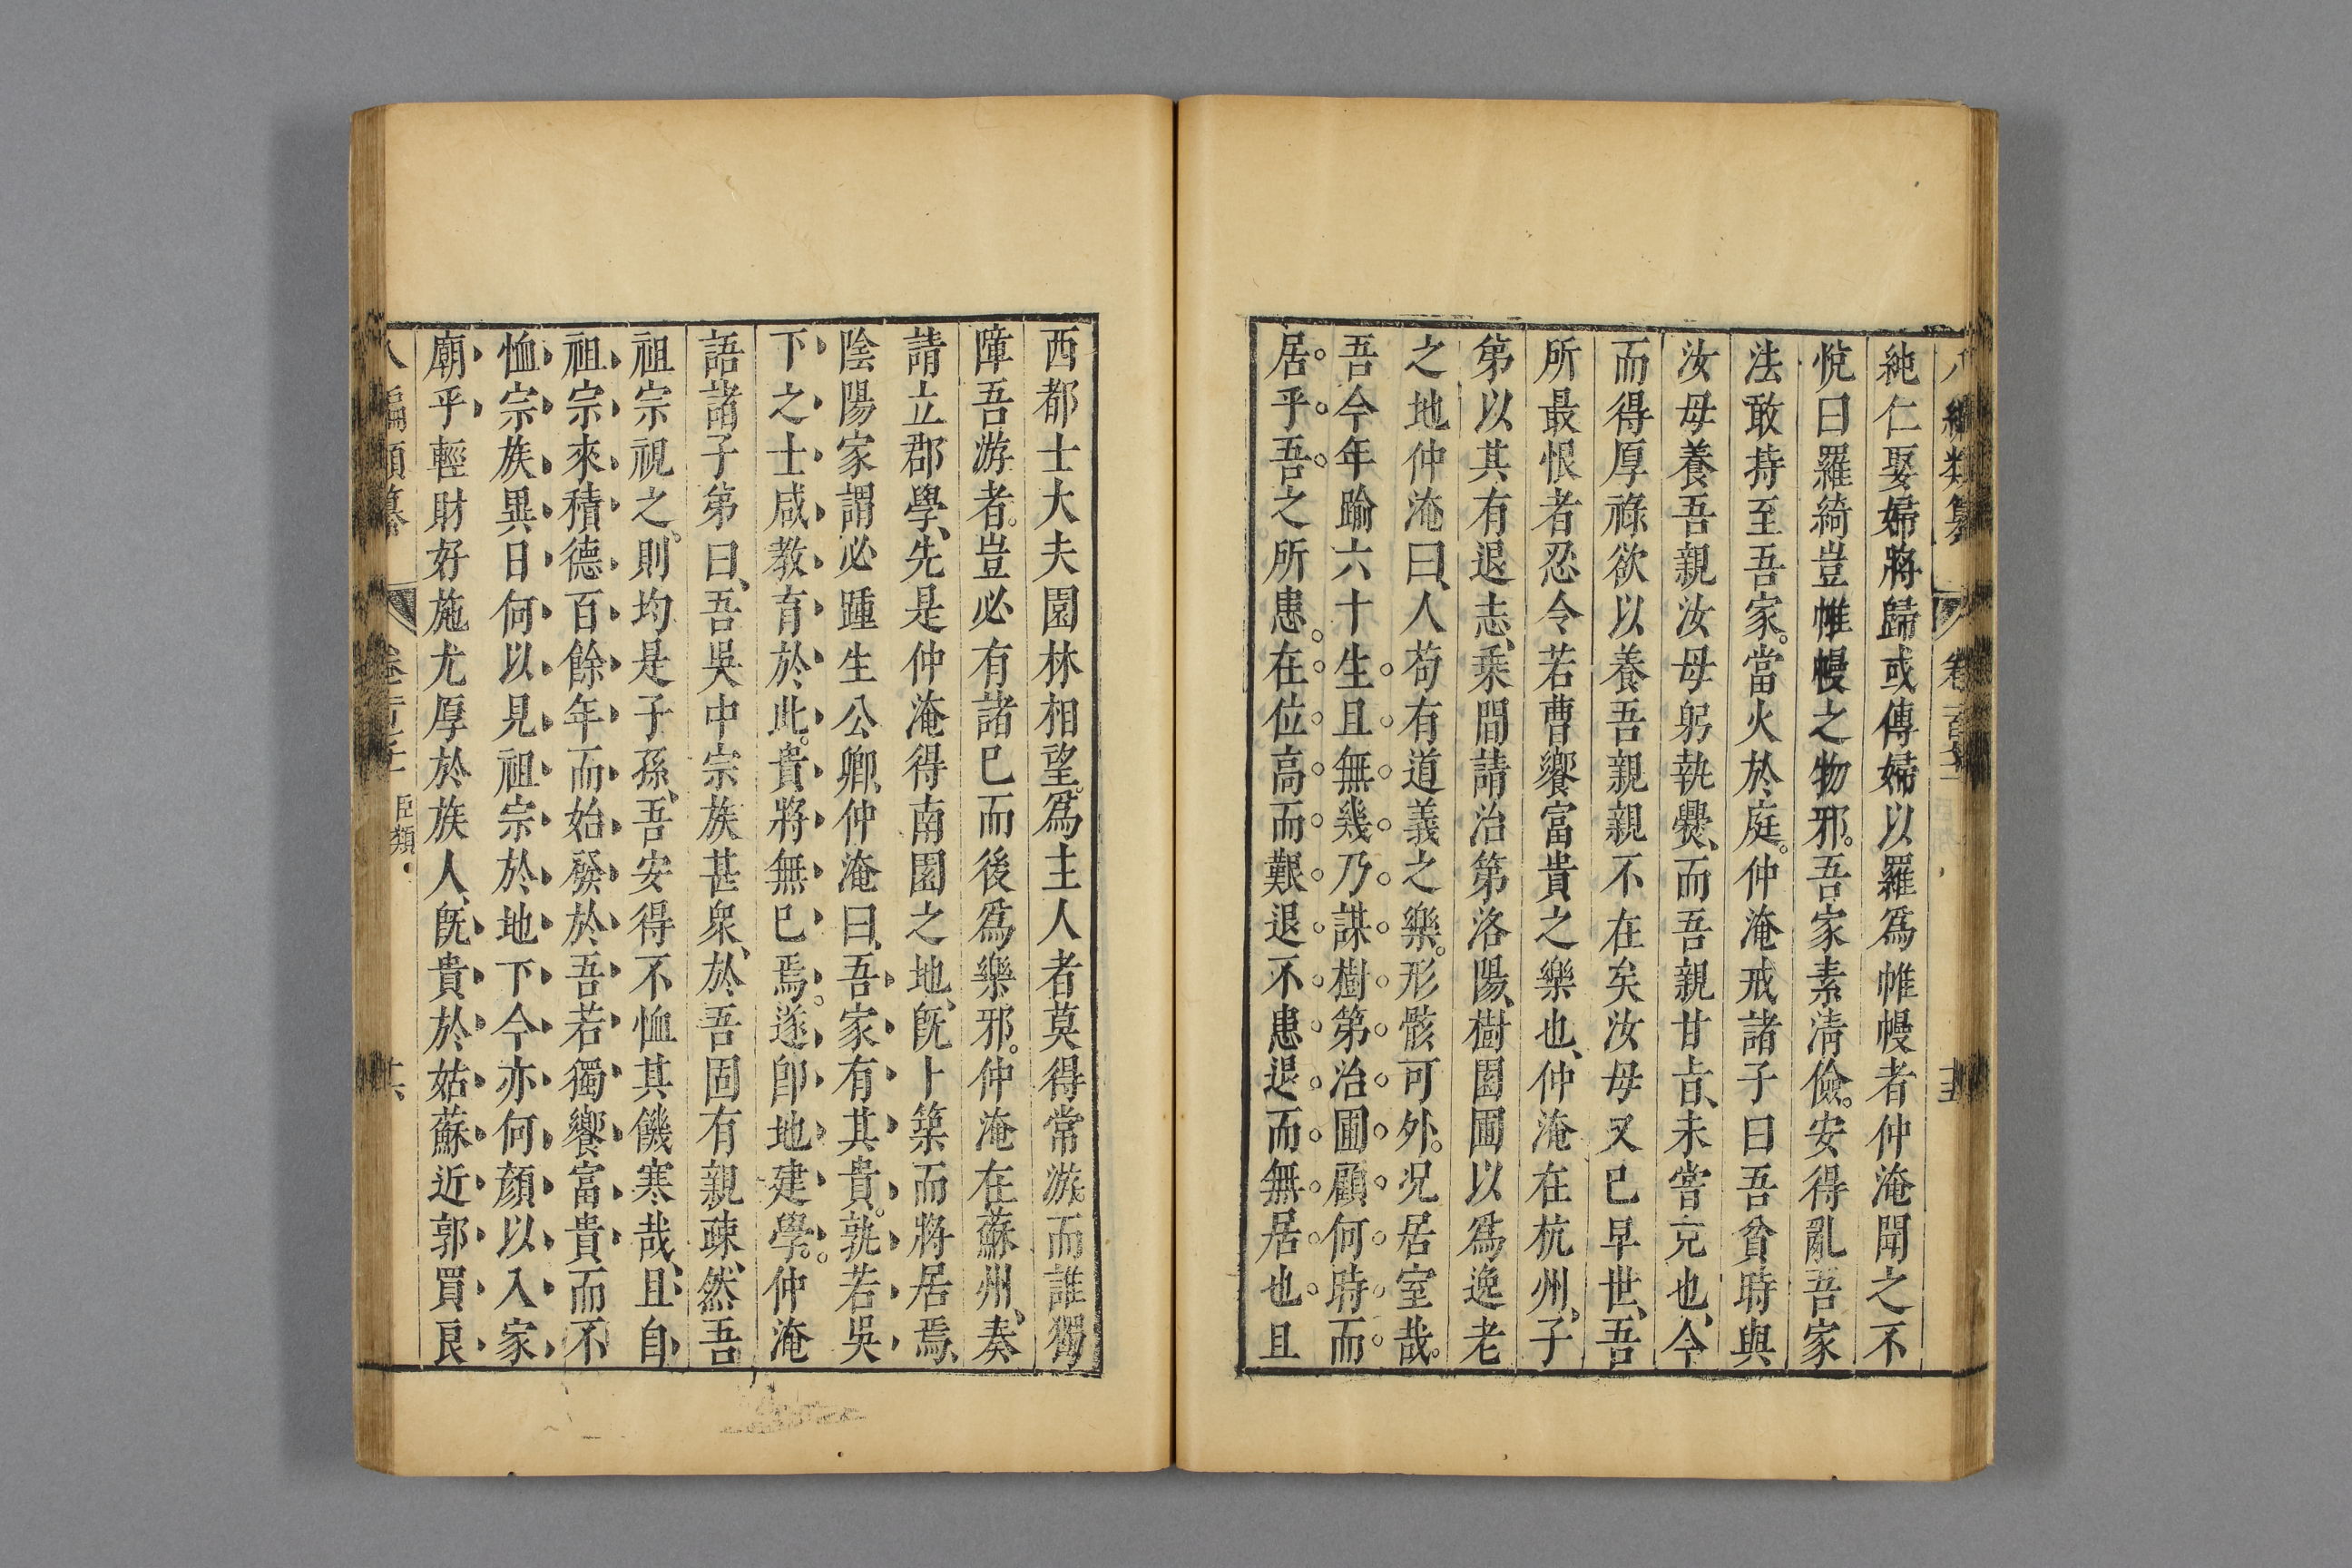 純仁娶婦將歸或傳婦以羅爲帷幔者仲淹聞之不
悅曰羅綺豈帷幔之物邪。吾家素清儉。安得亂吾家
法敢持至吾家。當火於庭。仲淹戒諸子曰吾貧時與
汝母養吾親汝母躬執爨、而吾親甘旨、未嘗充也、今
而得厚祿欲以養吾親親不在矣汝母又已早世、吾
所最恨者忍令若曹饗富貴之樂也、仲淹在杭州、子
第以其有退志、乘間請治第洛陽、樹園圃以爲逸老
之地仲淹曰、人苟有道義之樂。形骸可外。況居室哉。
吾今年踰六十生且無幾乃謀樹第治圃顧何時而
居乎吾之所患。在位高而艱退不患退而無居也且
西都士大夫園林相望。爲主人者莫得常游。而誰獨
障吾游者。豈必有諸已而後爲樂邪。仲淹在蘇州、奏
請立郡學、先是仲淹得南園之地、旣卜築而將居焉、
陰陽家謂必踵生公卿、仲淹曰、吾家有其貴。孰若吳
下之士咸教育於此。貴將無已焉。遂卽地建學。仲淹
語諸子第曰、吾吳中宗族甚衆、於吾固有親疎、然吾
祖宗視之。則均是子孫、吾安得不恤其饑寒哉、且自
祖宗來積德百餘年而始發於吾若獨饗富貴而不
恤宗族異日何以見祖宗於地下今亦何顏以入家
廟乎輕財好施尤厚於族人、旣貴於姑蘇近郭買良
臣類